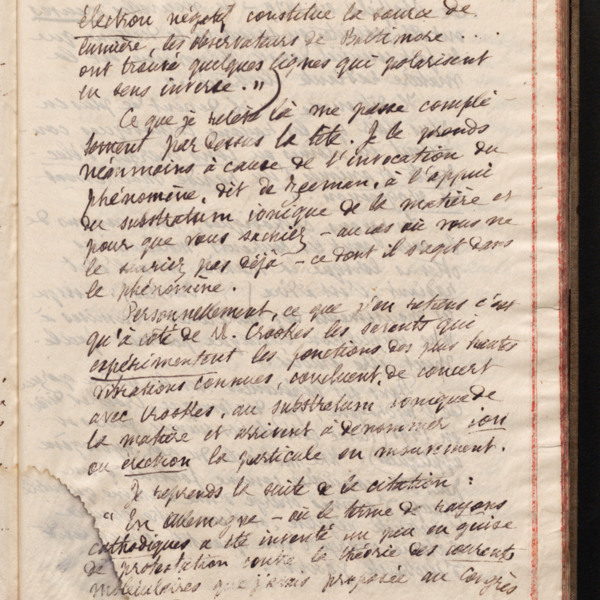 Électron négatif constitue la source de
lumière, les observateurs de Baltimore . . .
ont trouvé quelques lignes qui polarisent
en sens inverse. »
Ce que je relate là me passe complè-
tement par dessus la tête. Je le prends
néanmoins à cause de l'invocation du
phénomène, dit de Zeeman, à l'appui
du substratum ionique de la matière et
pour que vous sachiez – au cas où vous ne
le sauriez pas déjà – ce dont il s'agit dans
le phénomène.
Personnellement, ce que j'en retiens c'est
qu'à côté de M. Crookes les savants qui
expérimentent les fonctions des plus hautes
vibrations connues, concluent, de concert
avec Crookes, au substratum ionique de
la matière et arrivent à dénommer ion
ou électron la particule en mouvement.
Je reprends la suite de la citation :
" En Allemagne – où le terme de rayons
cathodiques a été inventé un peu en guise
de protestation contre la théorie des courants
moléculaires que j'avais proposée au Congrès